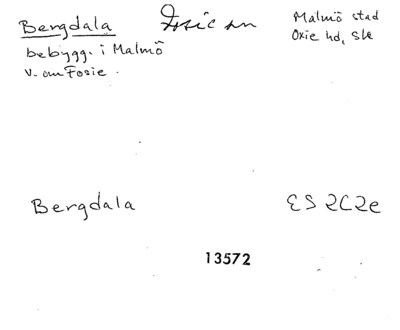 Bergdala
Fosie sn
Malmö stad
Oxie hd, Sk
bebygg. i Malmö
v. om Fosie.
Bergdala
ES 2C2e
13572